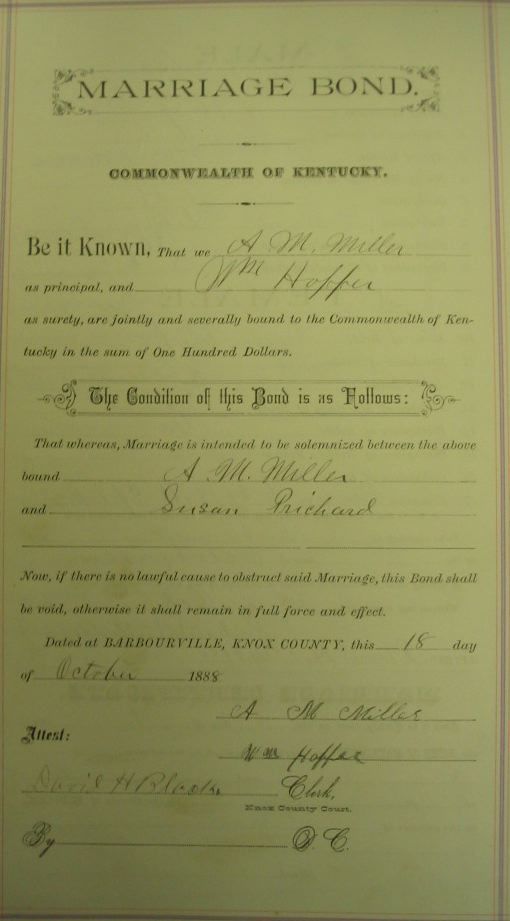 MARRIAGE BOND.
COMMONWEALTH OF KENTUCKY.
Be it Known, That we A M. Miller
as principal, and Wm Hopper
as surety, are jointly and severally bound to the Commonwealth of Ken-
tucky in the sum of One Hundred Dollars.
The Condition of this Bond is as Follows:
That whereas, Marriage is intended to be solemnized between the above
bound A M. Miller
and Susan Prichard
Now, if there is no lawful cause to obstruct said Marriage, this Bond shall
be void, otherwise it shall remain in full force and effect.
Dated at BARBOURVILLE, KNOX COUNTY, this 18 day
of October 1888
A M Miller
Attest:
Wm Hopper
David H Clerk,
Knox County Court.
By D. C.